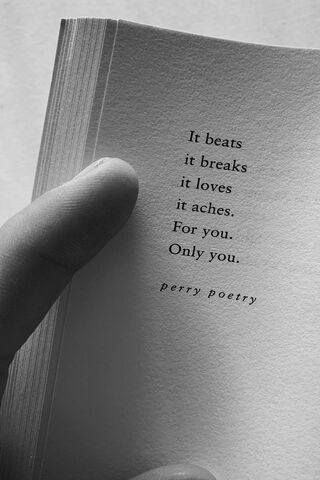 It beats
it breaks
it loves
it aches.
For you.
Only you.
perry poetry